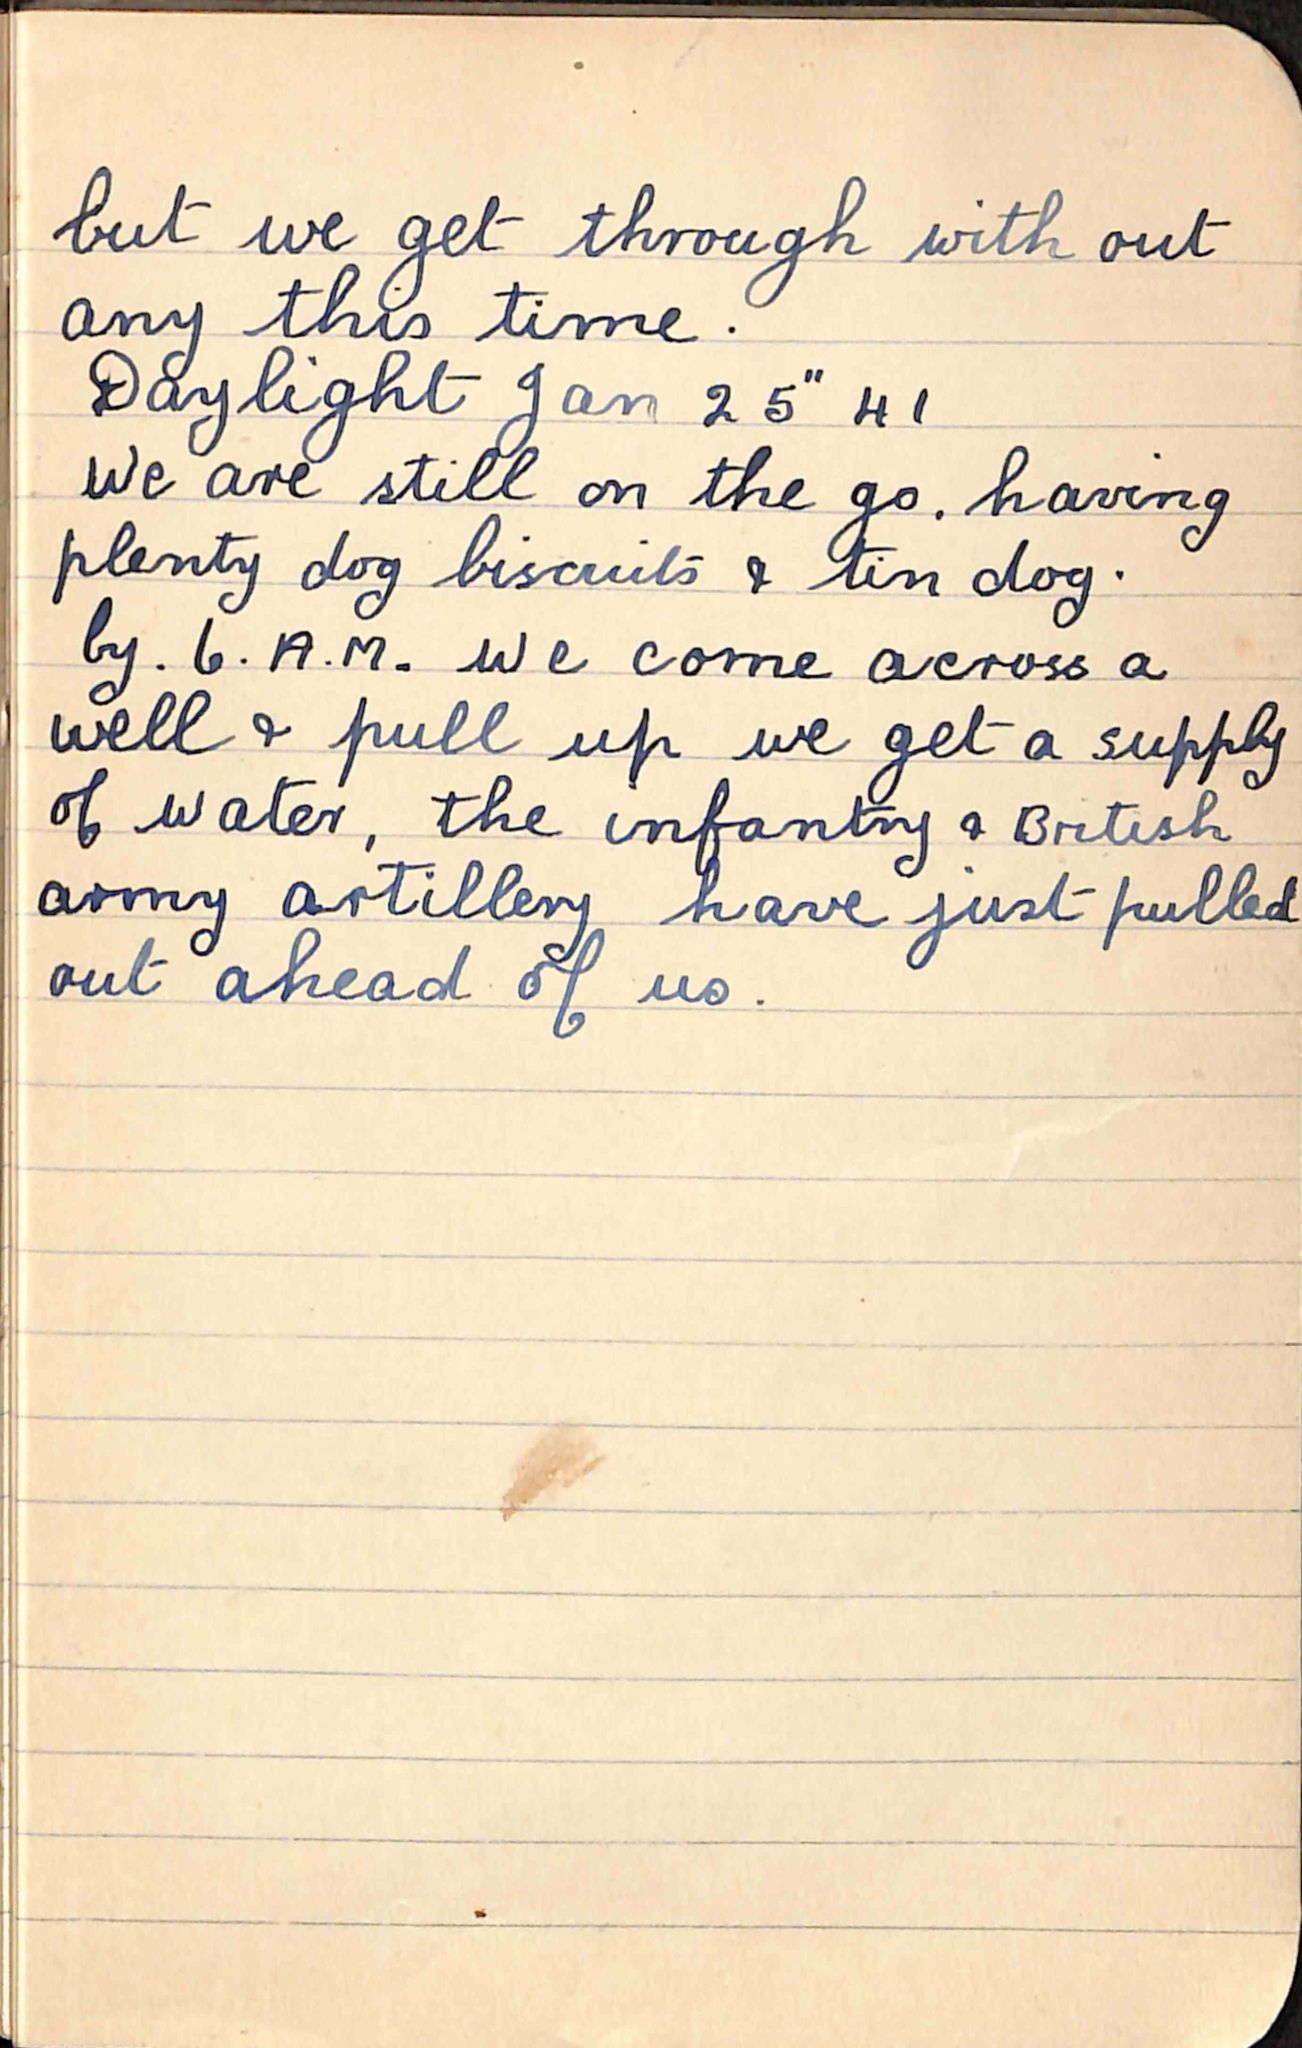 but we get through with out
any this time.
Daylight Jan 25" 41
We are still on the go. having
plenty dog biscuits & tin dog.
by. 6. A.M. we come across a
well & pull up we get a supply
of water, the infantry & British
army artillery have just pulled
out ahead of us.